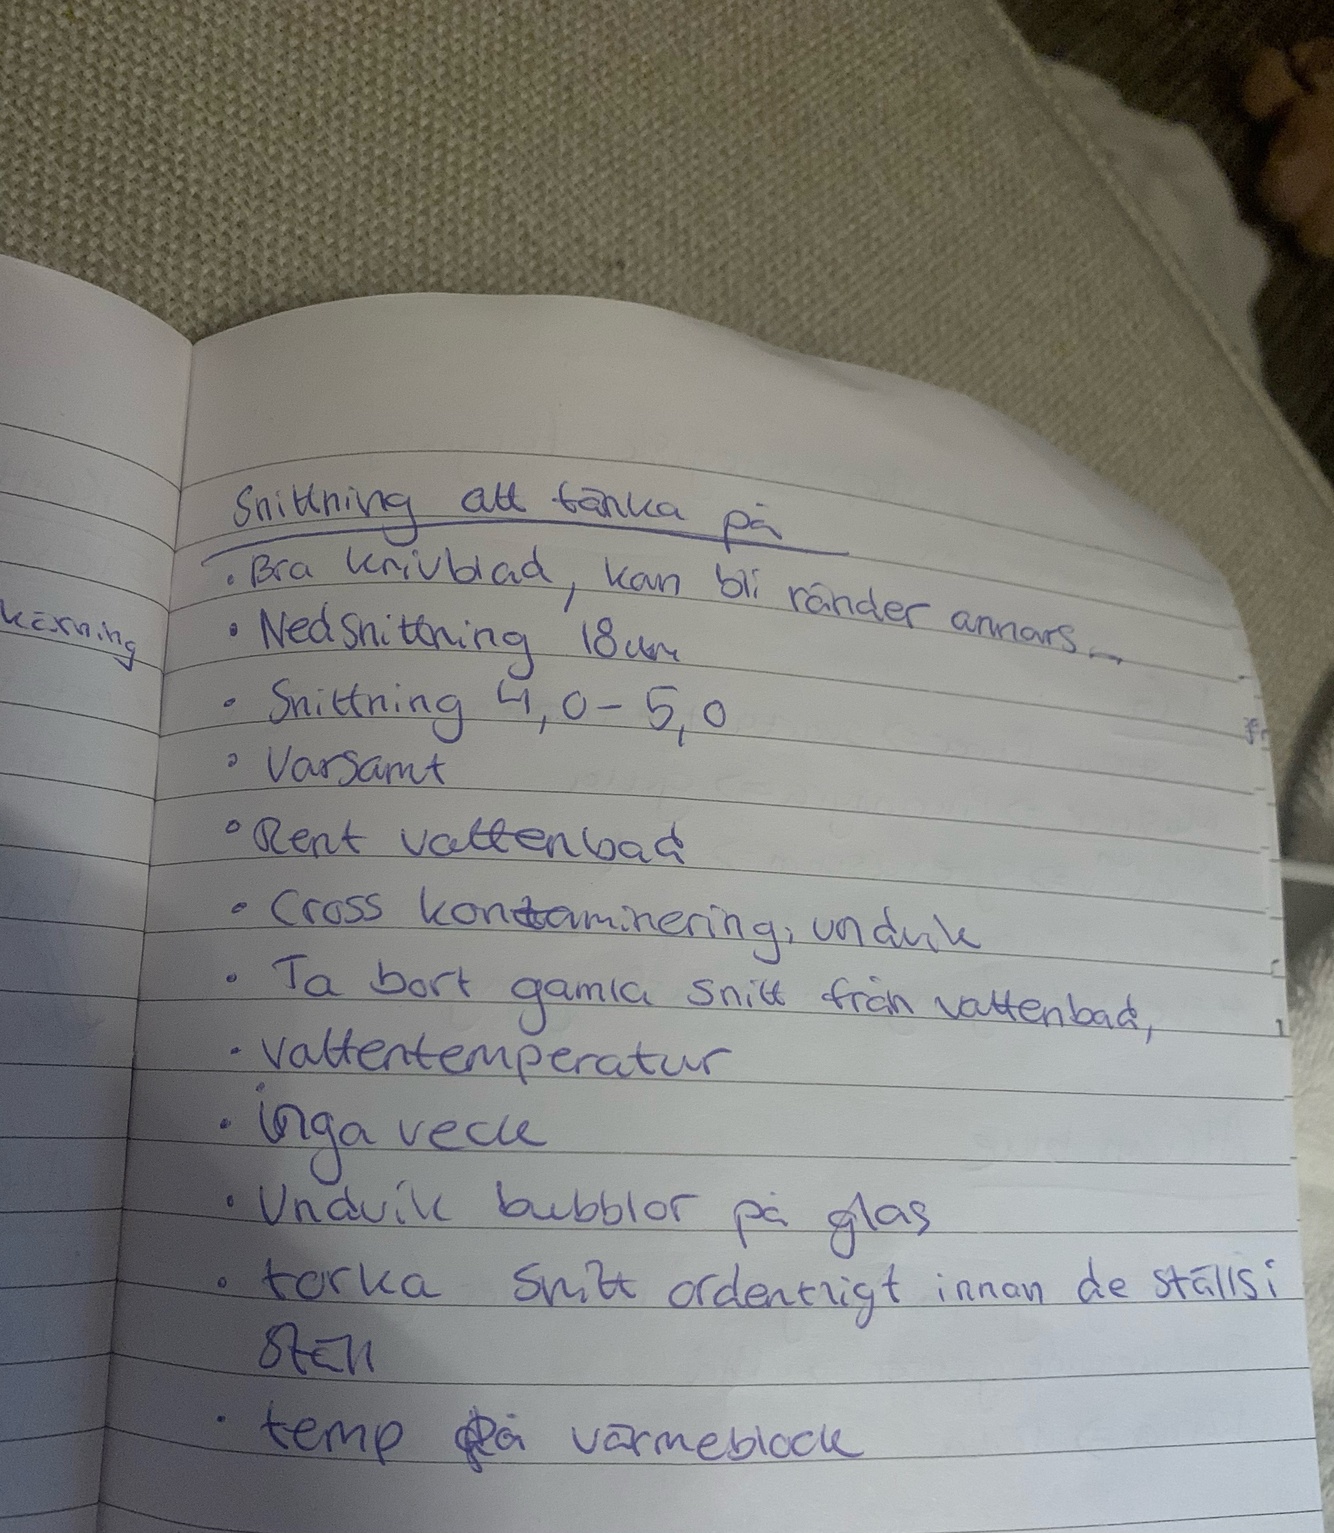 Snittning att tänka på
• Bra knivblad, kan bli ränder annars
• Nedsnittning 18um
• Snittning 4,0-5,0
• Varsamt
• Rent vattenbad
• Cross kontaminering, undvik
• Ta bort gamla snitt från vattenbad,
• Vattentemperatur
• inga veck
• Undvik bubblor på glas
• torka snitt ordentligt innan de ställs i
ställ
• temp på värmeblock